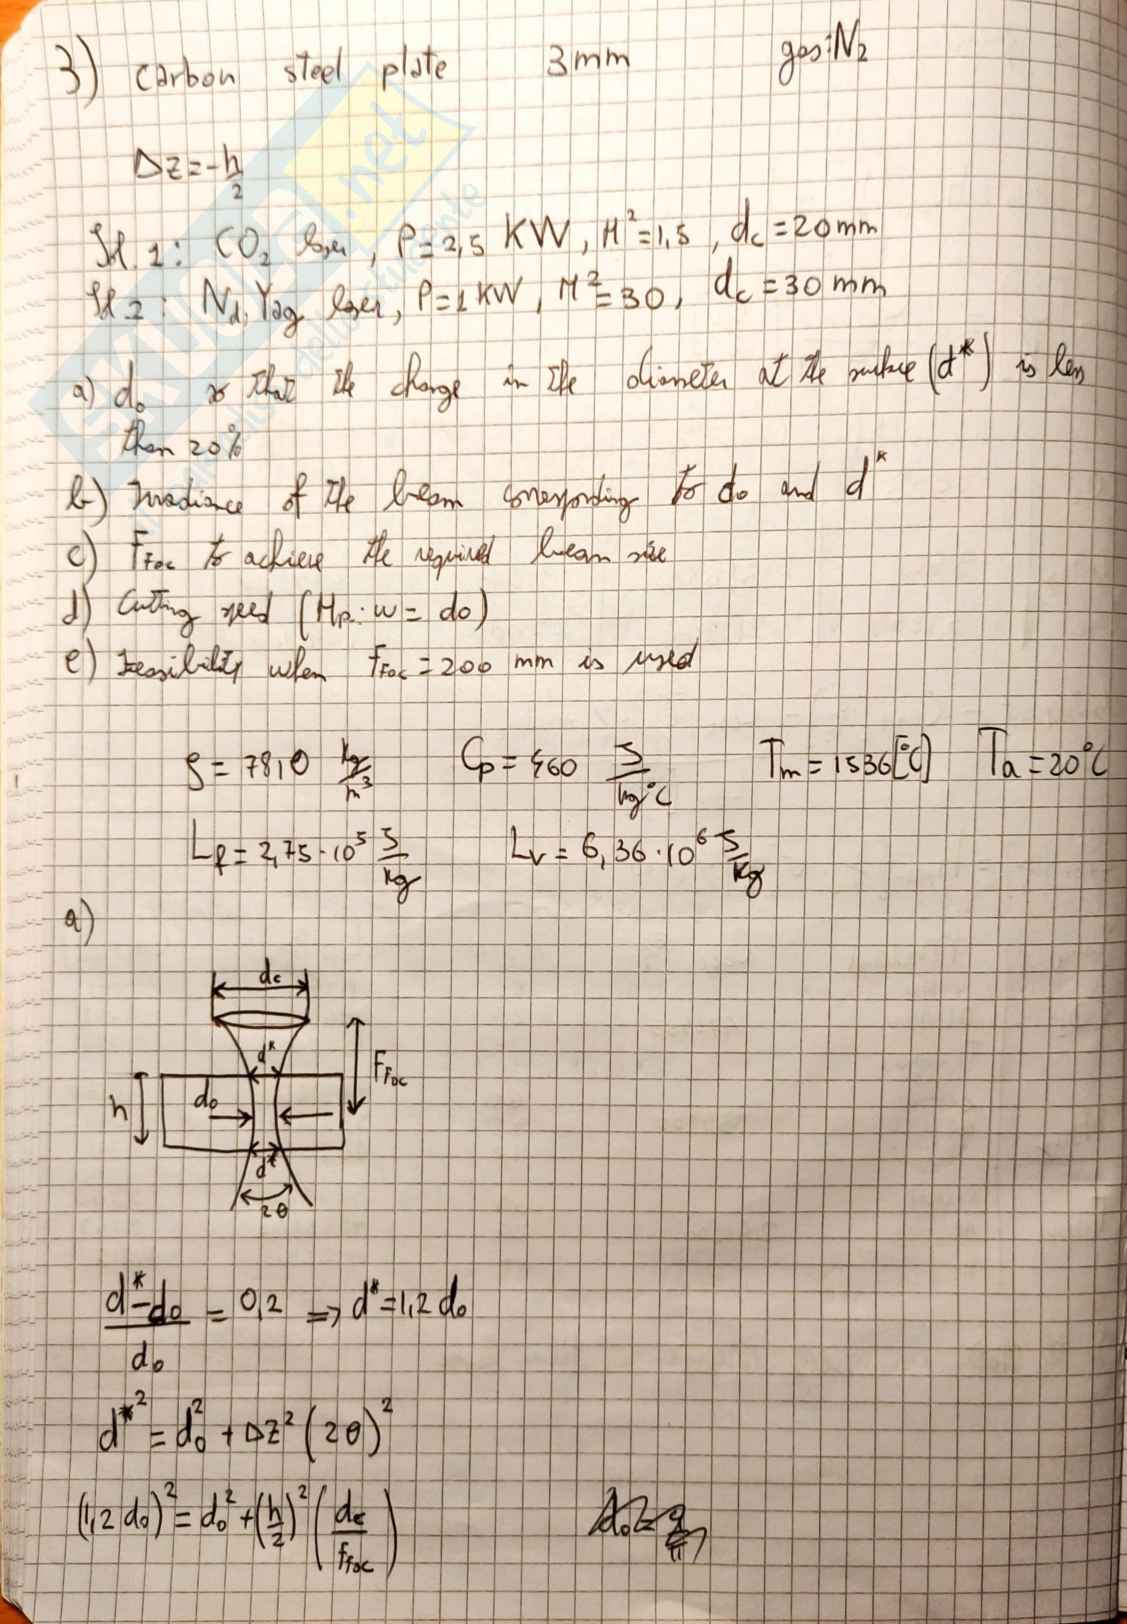 3) Carbon steel plate 3mm gas: N₂
Δz = -h/2
Sol. 1: CO₂ laser, P = 2,5 KW, M² = 1,5, dc = 20 mm
Sol. 2: Nd:Yag laser, P = 1 KW, M² = 30, dc = 30 mm
a) d₀ so that the change in the diameter at the surface (d*) is less
than 20%
b) Irradiance of the beam corresponding to d₀ and d*
c) F_Foc to achieve the required beam size
d) Cutting speed (Hp: w = d₀)
e) Feasibility when f_Foc = 200 mm is used
ρ = 7810 kg/m³ Cp = 460 J/kg°C Tm = 1536 [°C] Ta = 20°C
Lf = 2,75·10⁵ J/kg Lv = 6,36·10⁶ J/kg
a)
dc
d*
F_Foc
h
d₀
d*
2θ
(d* - d₀)/d₀ = 0,2 => d* = 1,2 d₀
d*² = d₀² + Δz² (2θ)²
(1,2 d₀)² = d₀² + (h/2)² (dc/f_Foc)